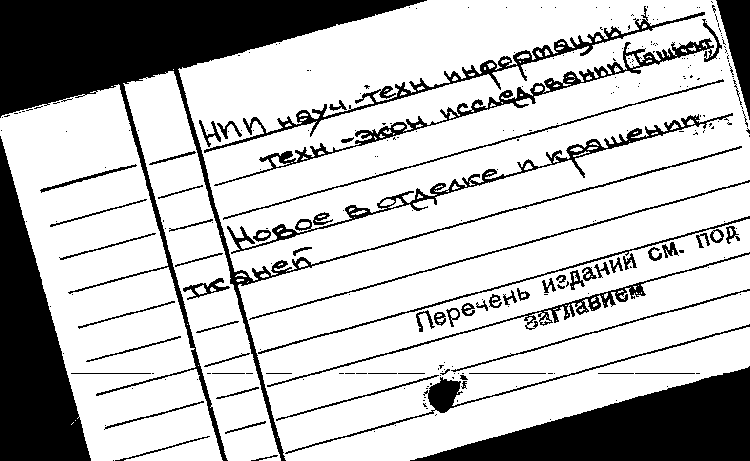 НИИ науч.-техн. информации и
техн.-экон. исследований (Ташкент)
Новое в отделке и крашении
тканей
Перечень изданий см. под
заглавием